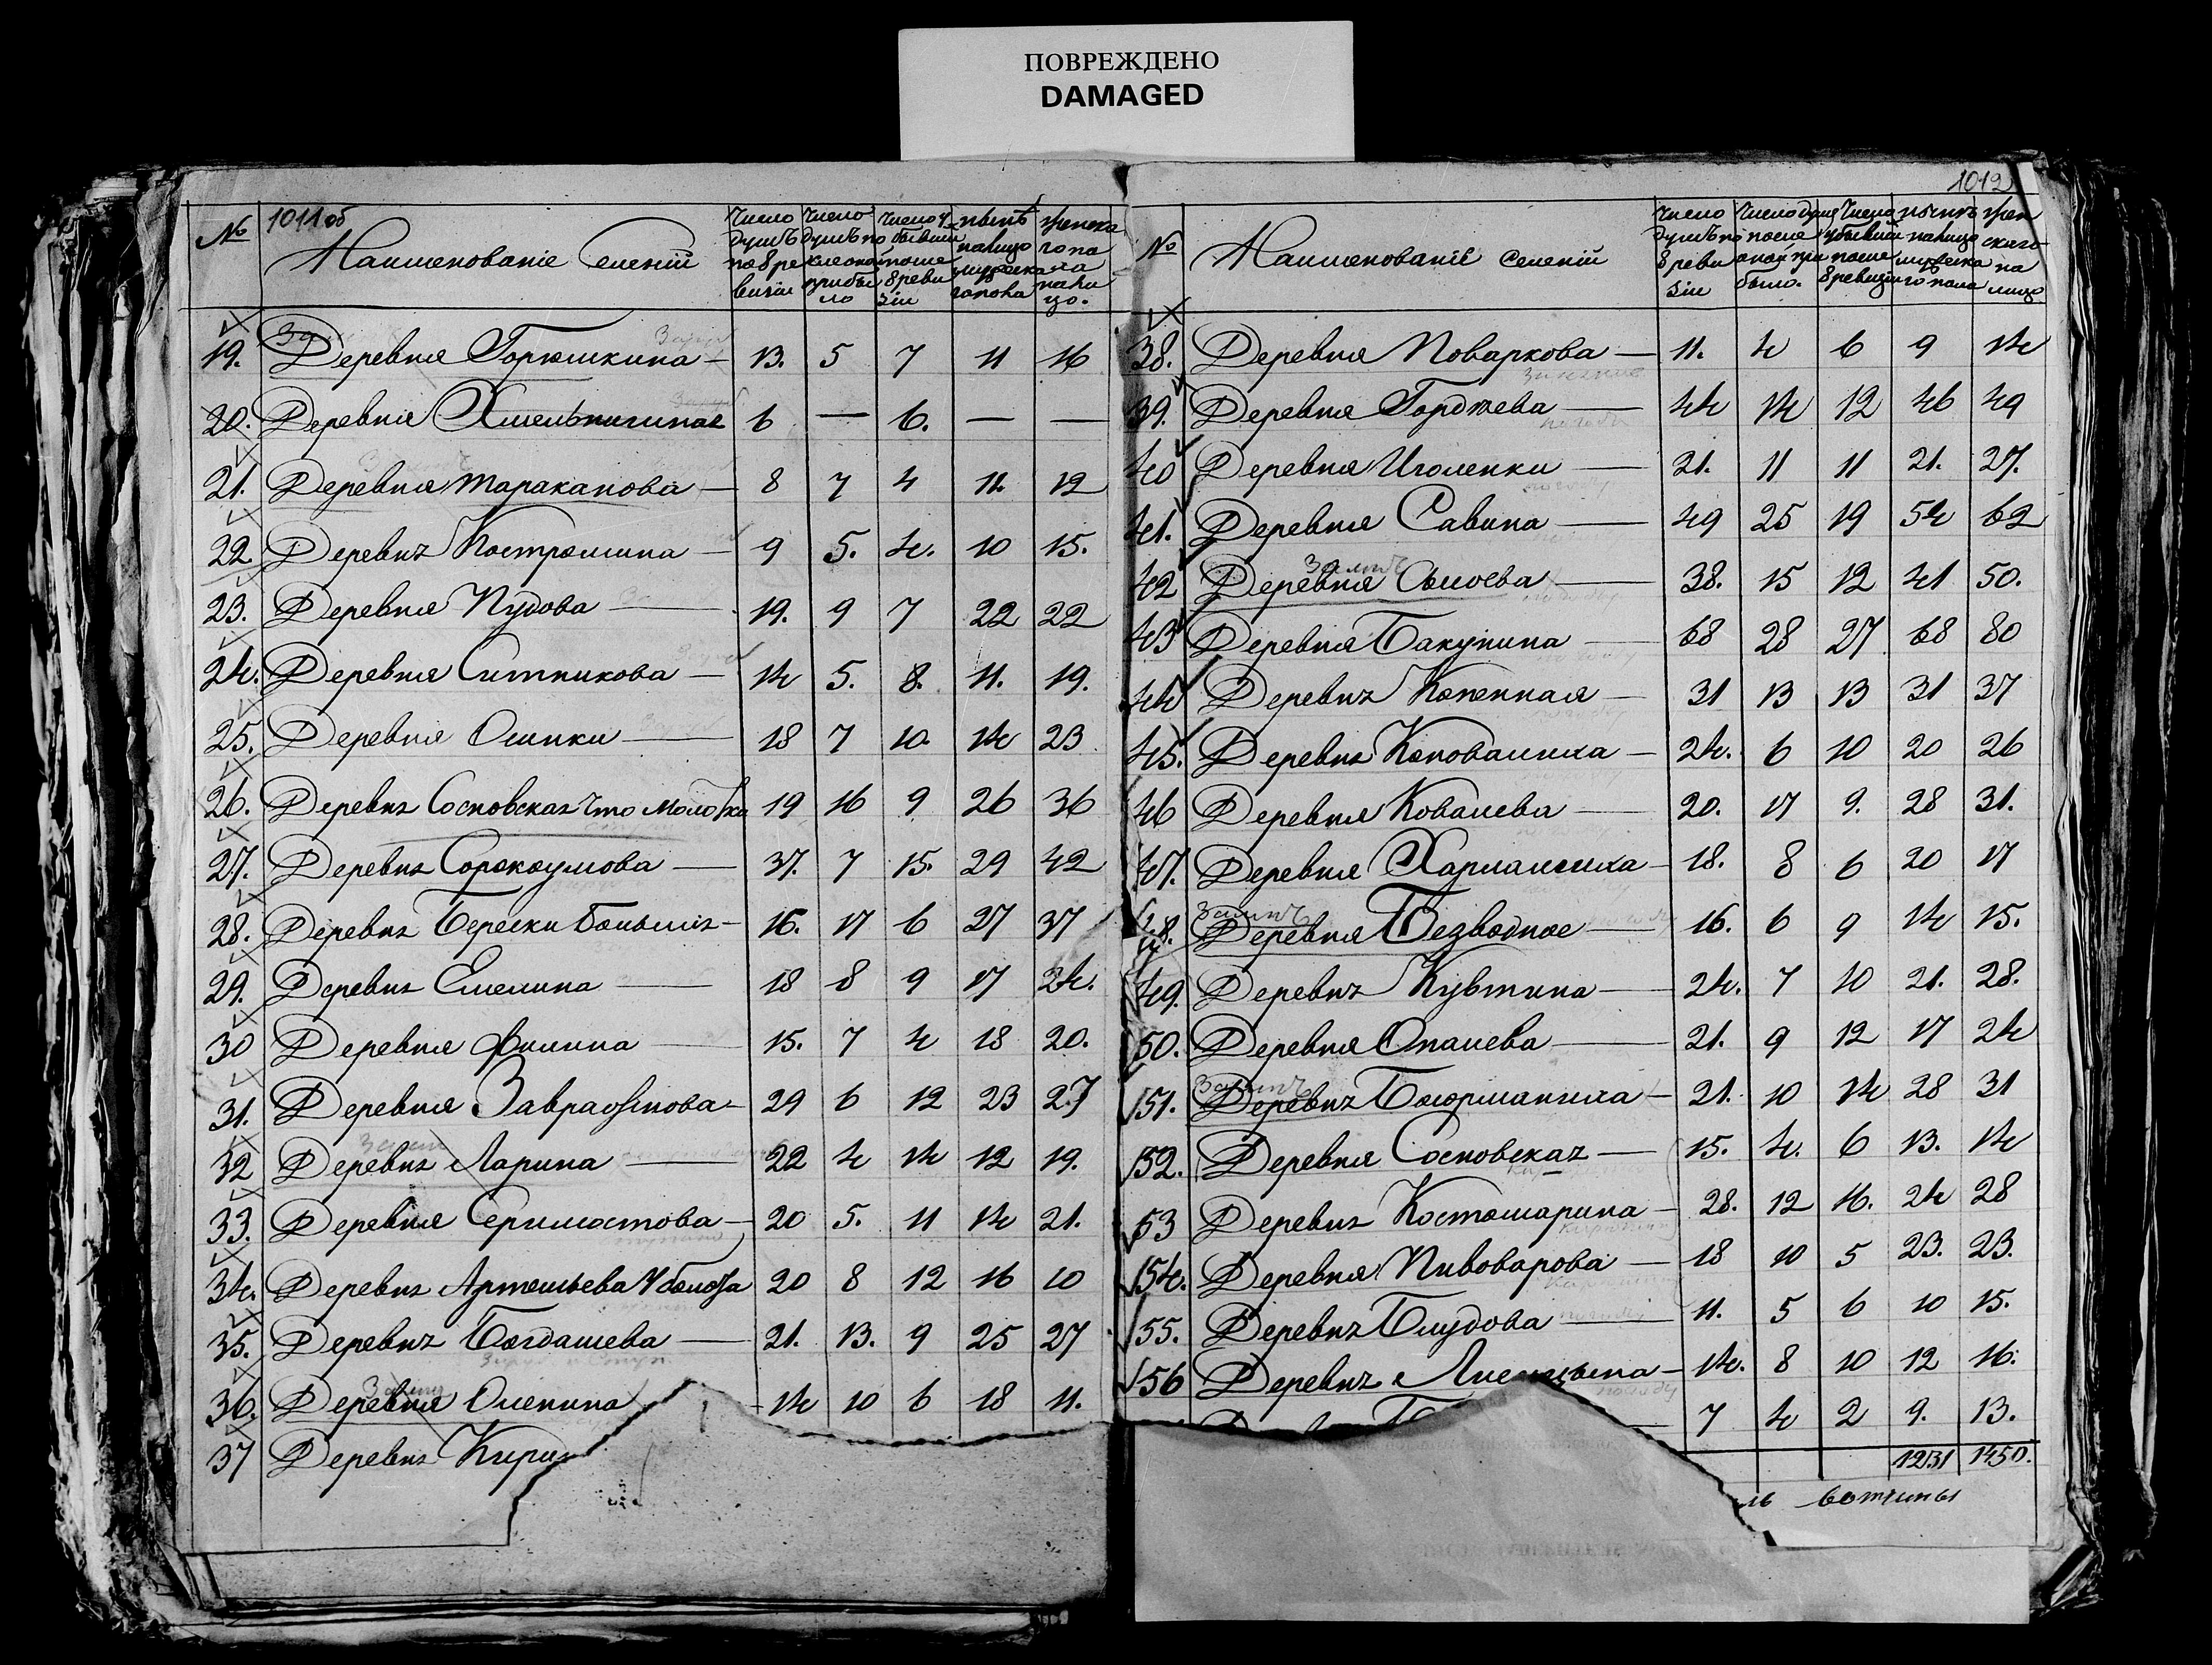 ПОВРЕЖДЕНО
DAMAGED
1011об
№ Наименованіе Селеній Число душъ по 8 ревизіи Число душъ после оной прибыло Число убывших после 8 ревизіи нынѣ налицо мужеска го пола женска го пола на лицо.
19. Деревня Горюшкина — 13. 5 7 11 16
20. Деревня Хмельничиная 6 — 6. — —
21. Деревня Тараканова — 8 7 4 11. 12
22 Деревня Костромина — 9 5. 4. 10 15.
23. Деревня Пудова — 19. 9 7 22 22
24. Деревня Ситникова — 14 5. 8. 11. 19.
25. Деревня Олинки — 18 7 10. 14 23
26. Деревня Сосновская что 19 16 9 26 36
27. Деревня Сорокоумова — 37. 7 15. 29 42
28. Деревня Берески Большія — 16. 17 6 27 37
29. Деревня Емелина — 18 8 9 17 24.
30 Деревня Филина — 15. 7 4 18 20.
31. Деревня — 29 6 12 23 27
32 Деревня Ларина — 22 4 14 12 19.
33. Деревня — 20 5. 11 14 21.
34. Деревня Артемьева У болота 20 8 12 16 10
35. Деревня Богдашева — 21. 13. 9 25 27
36. Деревня Оленина 14 10 6 18 11.
37 Деревня Кири
1012
№ Наименованіе селеній Число душъ по 8 ревизіи Число душъ после оной прибыло. Число убывших после 8 ревизіи нынѣ налицо мужеска го пола женскаго на лицо
38. Деревня Поваркова — 11. 4 6 9 14
39. Деревня Гордѣева — 44 14 12 46 49
40 Деревня Иголенки — 21. 11 11 21. 27.
41. Деревня Савина — 49 25 19 54 62
42 Деревня Сысоева — 38. 15 12 41 50.
43 Деревня Бакунина — 68 28 27 68 80
44 Деревня Копенная — 31 13 13 31 37
45. Деревня Коновалиха — 24. 6 10 20 26
46 Деревня Ковалева — 20. 17 9. 28 31.
47. Деревня Харланиха — 18. 8 6 20 17
48. Деревня Безводное — 16. 6 9 14 15.
49. Деревня — 24. 7 10 21. 28.
50. Деревня Опалева — 21. 9 12 17 24
51. Деревня Бюрманиха — 21. 10 14 28 31
52. Деревня Сосновская — 15. 4. 6 13. 14
53 Деревня Костомарина — 28. 12 16. 24 28
54. Деревня Пивоварова — 18 10 5 23. 23.
55. Деревня Блудова — 11. 5 6 10 15.
56 Деревня — 14. 8 10 12 16.
7 4 2 9. 13.
1231 1450.
вотчины